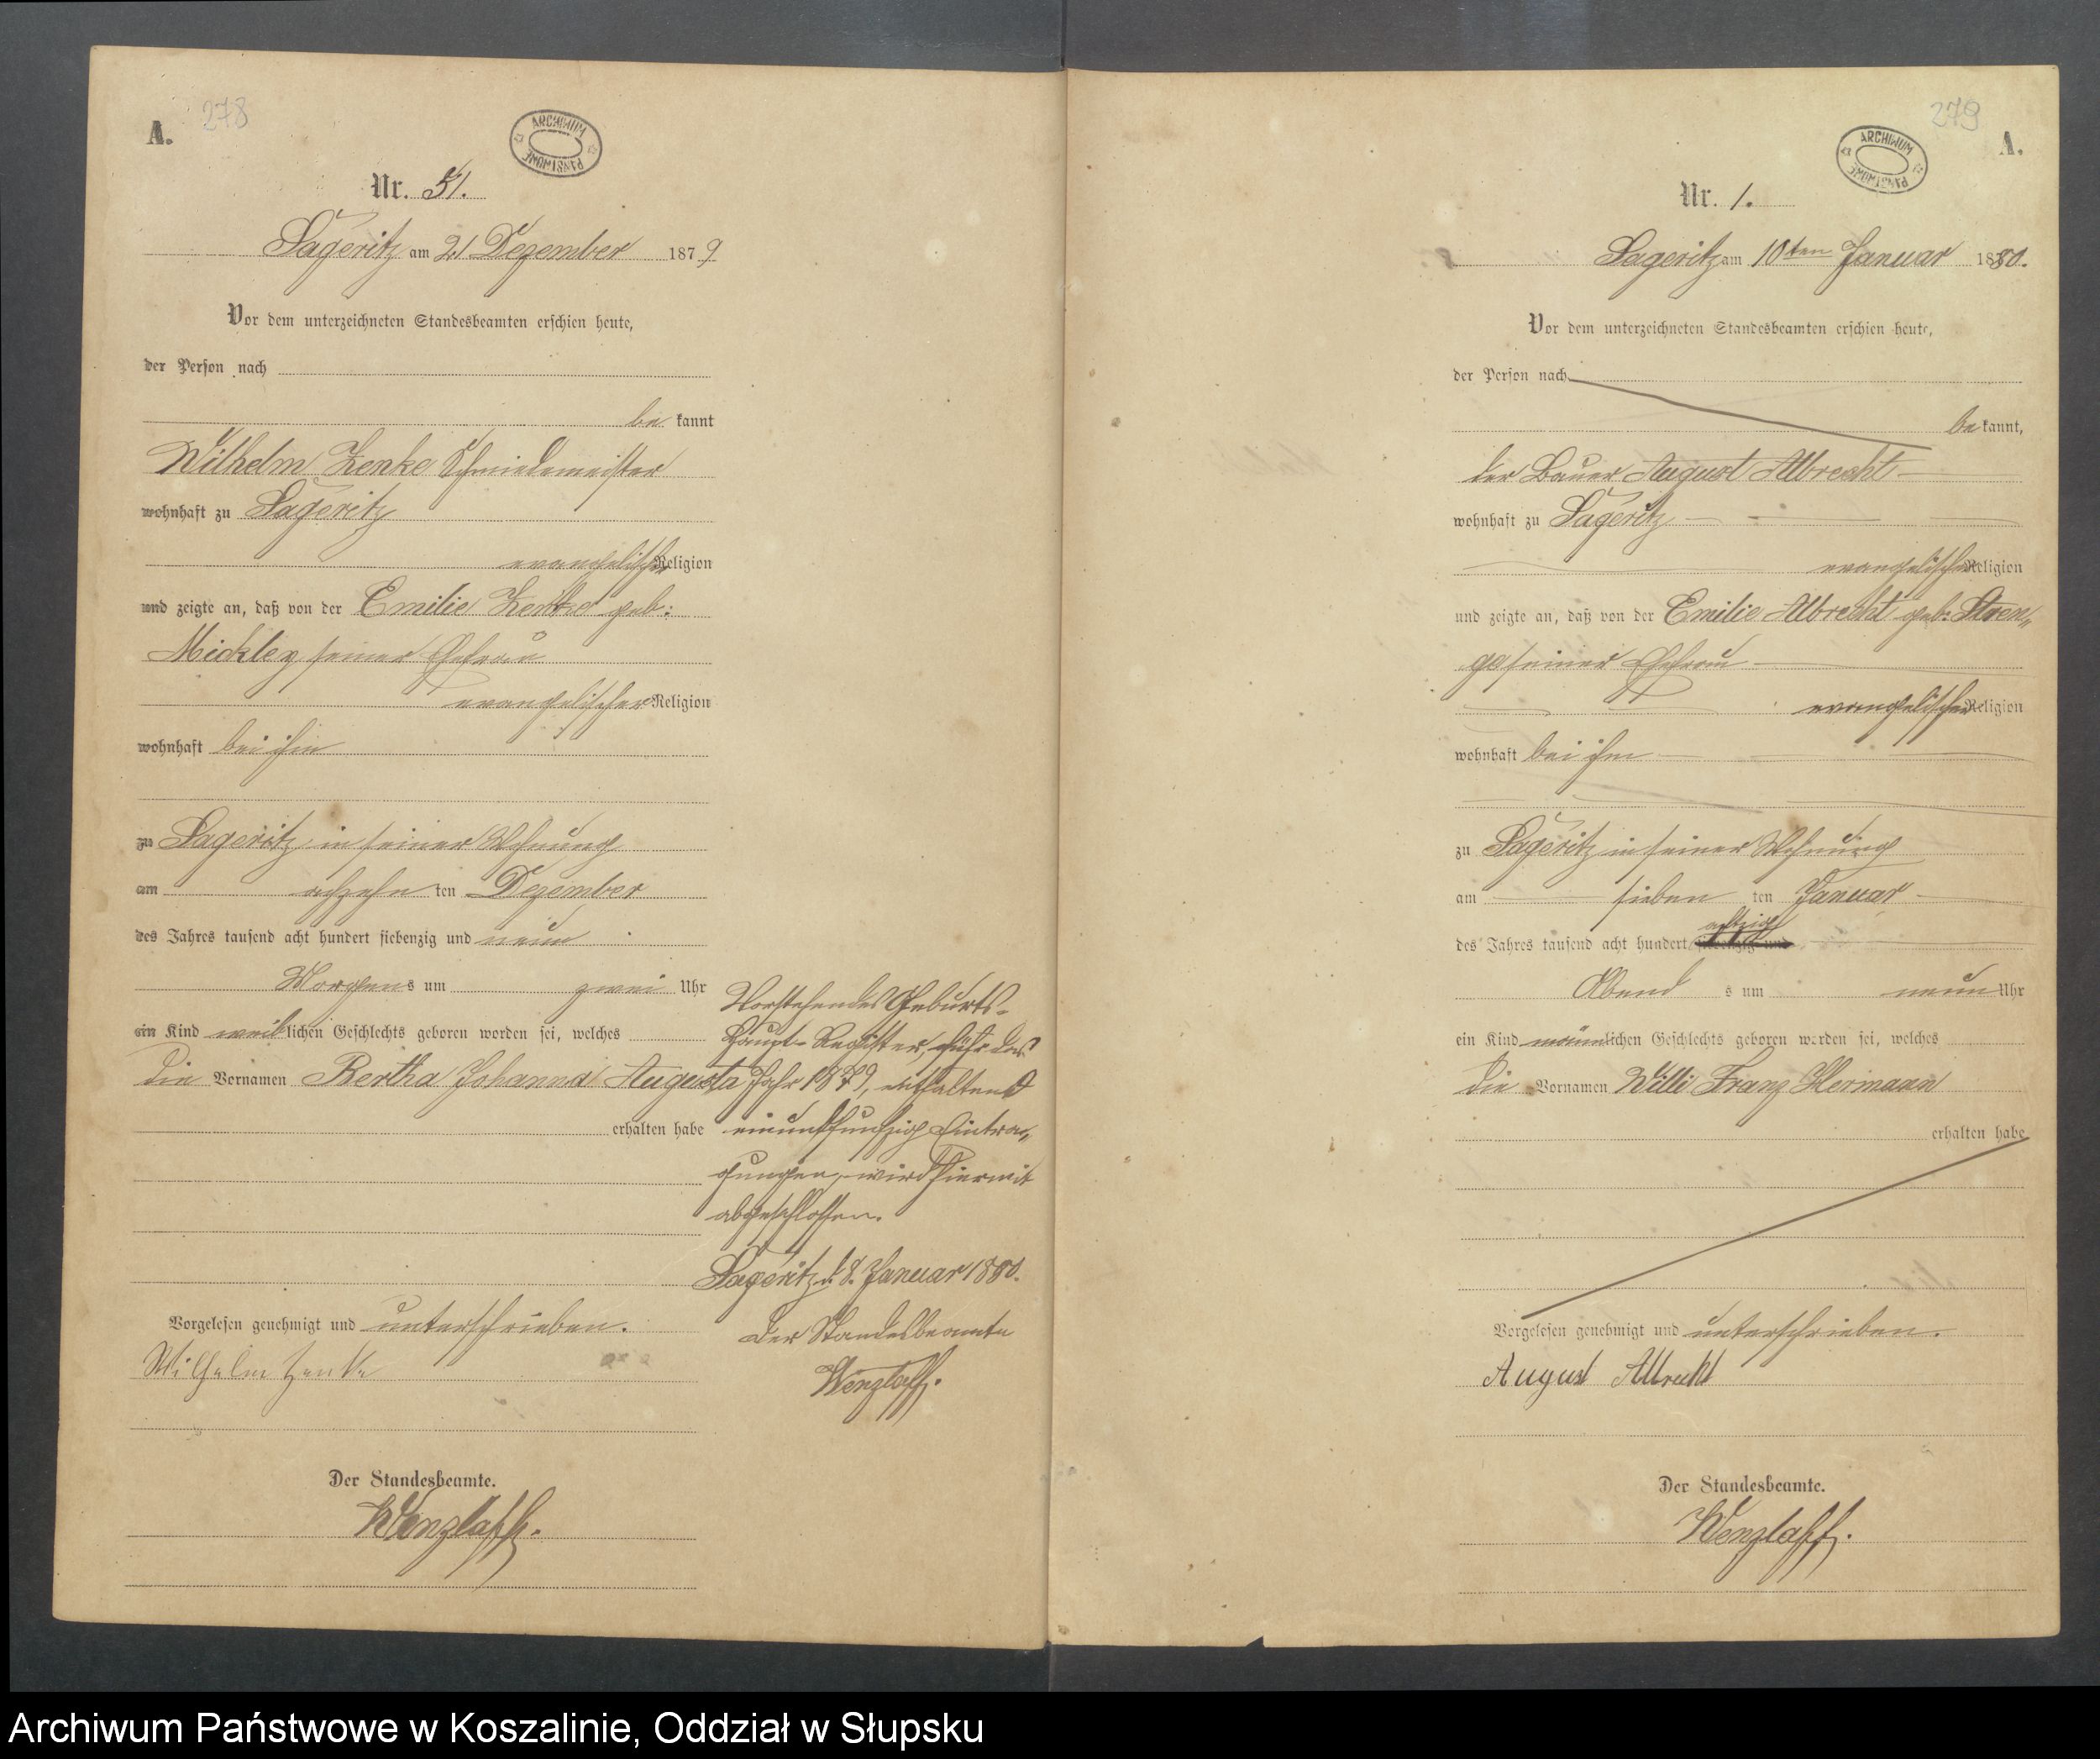 A. 278
ARCHIWUM PAŃSTWOWE
Nr. 51.
Sageritz am 21 Dezember 1879
Vor dem unterzeichneten Standesbeamten erschien heute,
der Person nach
be kannt
Wilhelm Zenke Schmiedemeister
wohnhaft zu Sageritz
evangelischer Religion
und zeigte an, daß von der Emilie Zenke geb:
Mickley seiner Ehefrau
evangelischer Religion
wohnhaft bei ihm
zu Sageritz in seiner Wohnung
am achzehn ten Dezember
des Jahres tausend acht hundert siebenzig und neun
Morgens um zwei Uhr
ein Kind weiblichen Geschlechts geboren worden sei, welches
die Vornamen Bertha Johanna Augusta
erhalten habe
Vorgelesen genehmigt und unterschrieben.
Wilhelm Zenke
Der Standesbeamte.
Wenzlaff.
Vorstehendes Geburts-
Haupt-Register, für das
Jahr 1879, enthaltend
einundfunfzig Eintra„
gungen, wird hiermit
abgeschlossen.
Sageritz d. 8. Januar 1880.
Der Standesbeamte
Wenzlaff.
279 A.
ARCHIWUM PAŃSTWOWE
Nr. 1.
Sageritz am 10ten Januar 1880.
Vor dem unterzeichneten Standesbeamten erschien heute,
der Person nach
be kannt,
der Bauer August Albrecht
wohnhaft zu Sageritz
evangelischer Religion
und zeigte an, daß von der Emilie Albrecht geb: Stren„
ge seiner Ehefrau
evangelischer Religion
wohnhaft bei ihm
zu Sageritz in seiner Wohnung
am sieben ten Januar
achtzig
des Jahres tausend acht hundert siebenzig und
Abend s um neun Uhr
ein Kind männlichen Geschlechts geboren worden sei, welches
die Vornamen Willi Franz Hermann
erhalten habe
Vorgelesen genehmigt und unterschrieben.
August Albrecht
Der Standesbeamte.
Wenzlaff.
Archiwum Państwowe w Koszalinie, Oddział w Słupsku